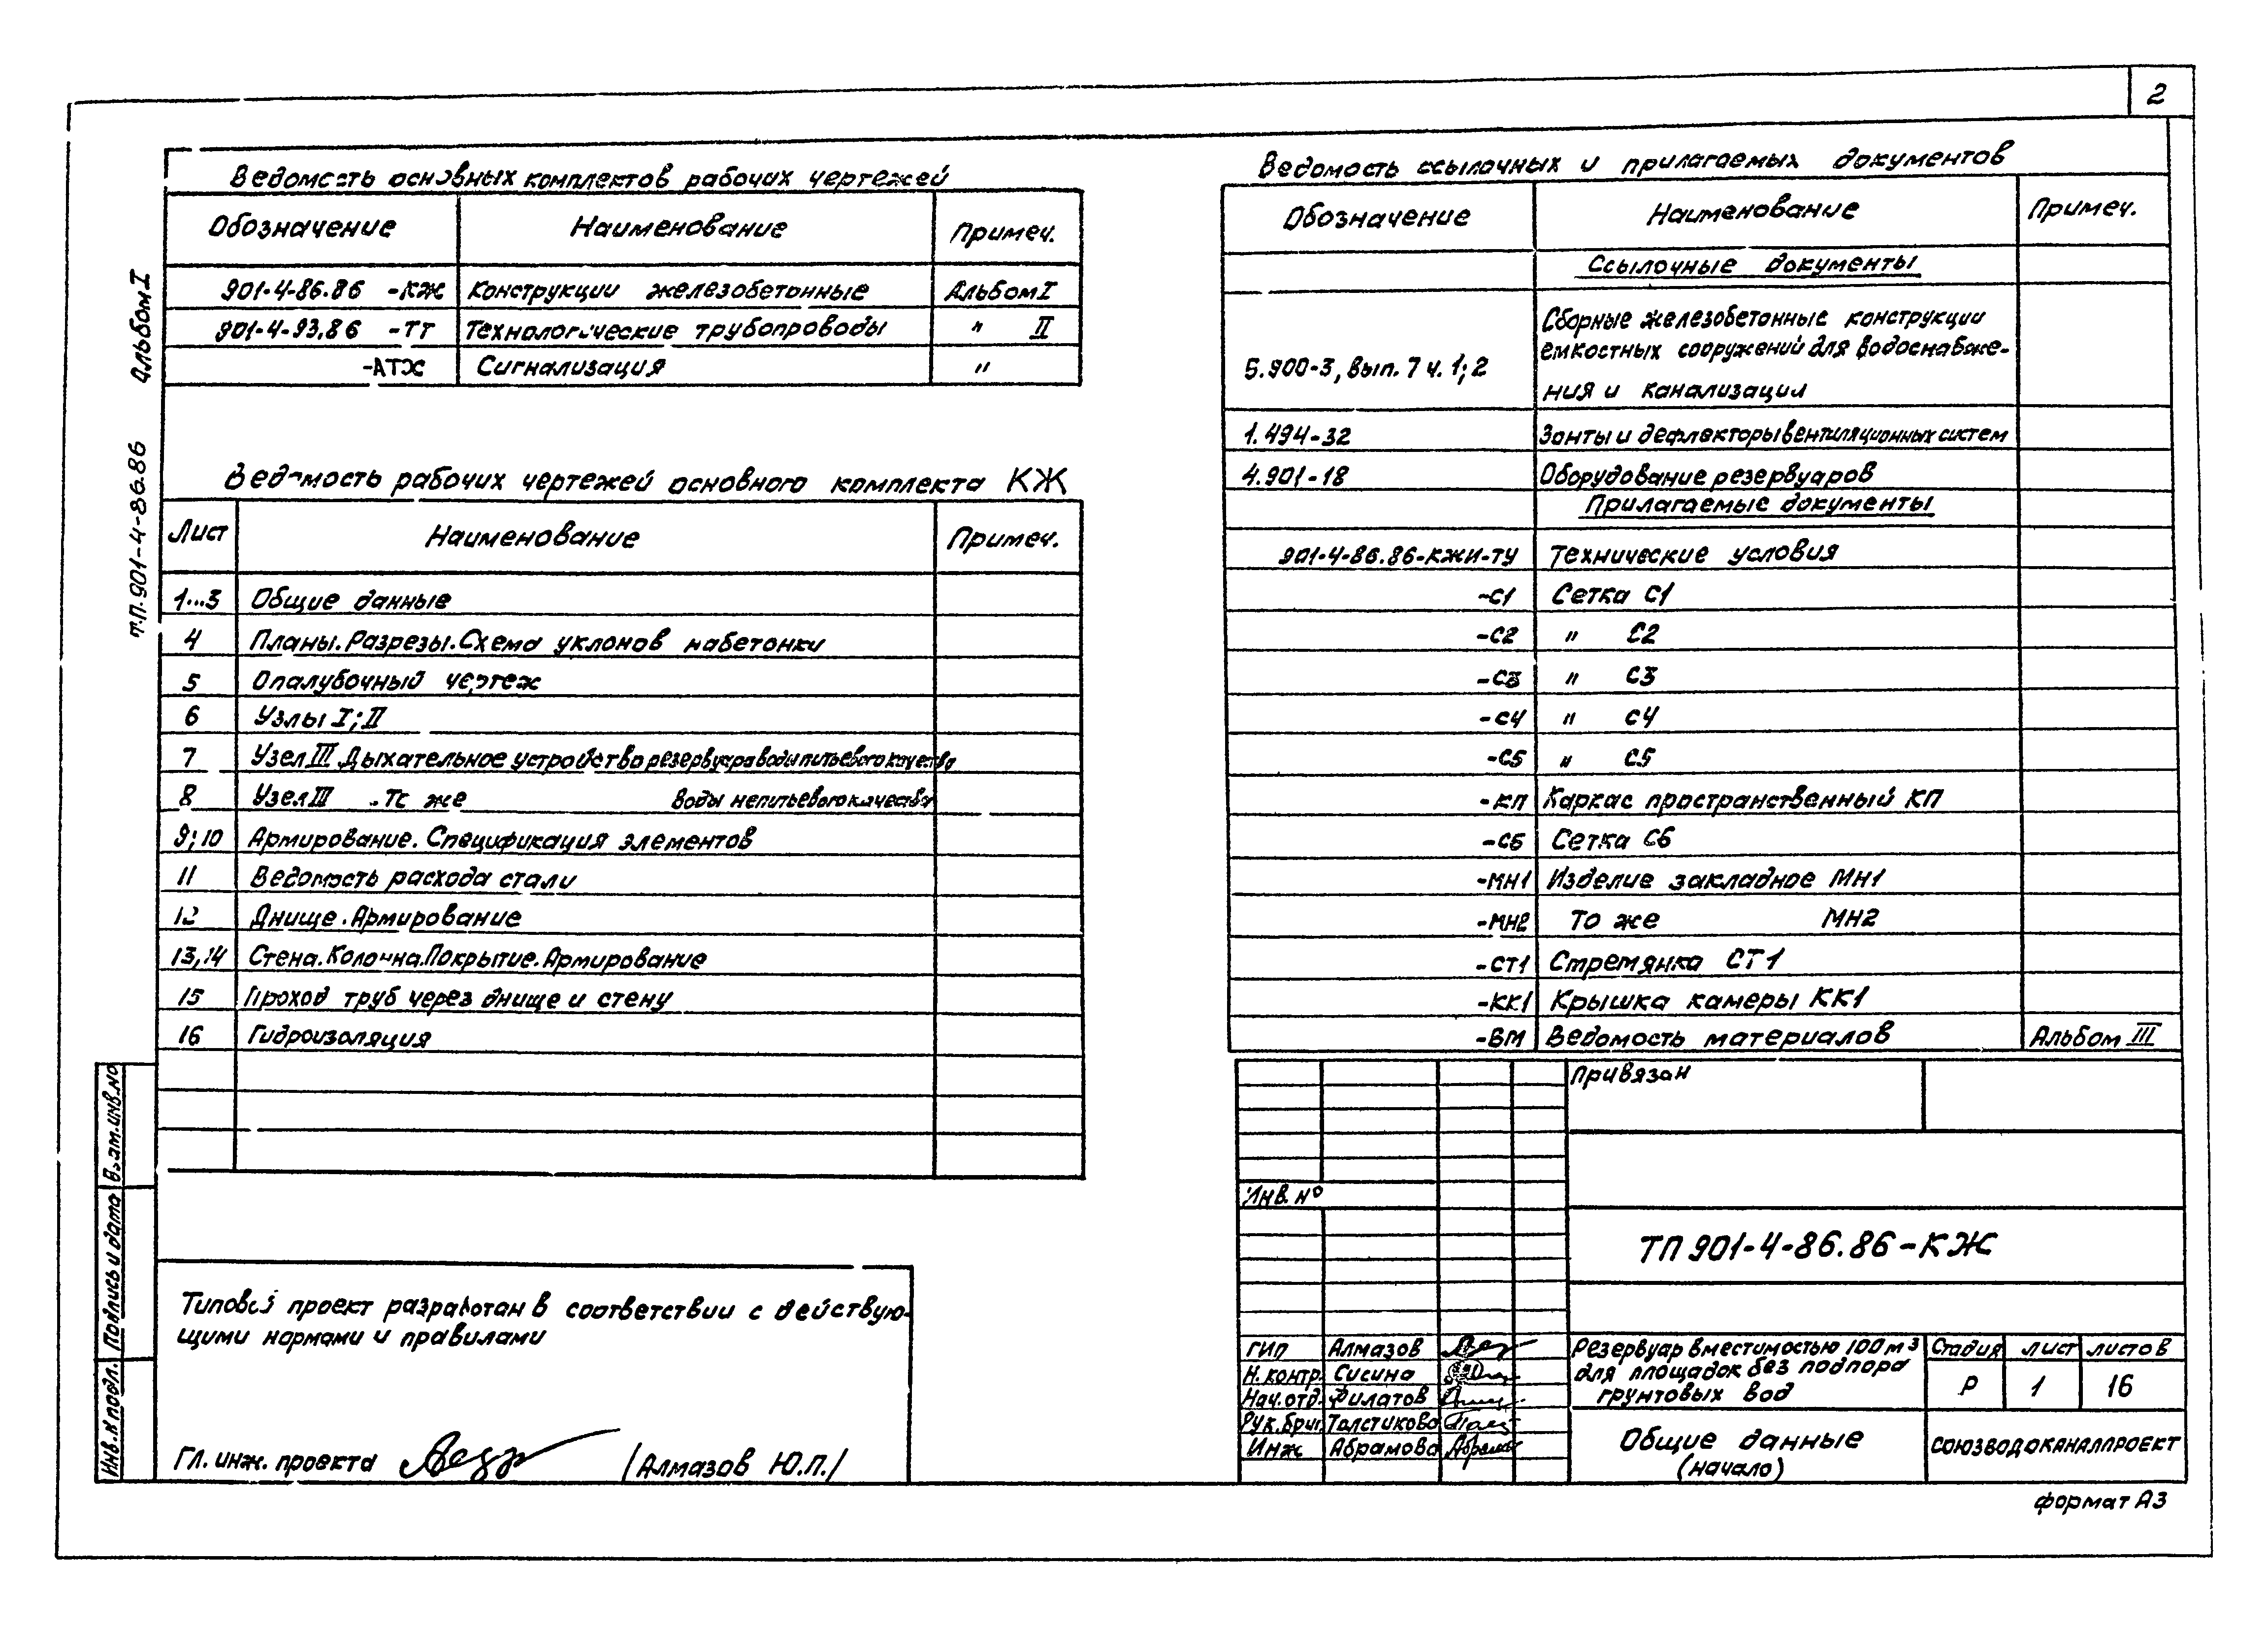 2
Альбом I
т.п. 901-4-86.86
Ведомость основных комплектов рабочих чертежей
Обозначение Наименование Примеч.
901-4-86.86 -КЖ Конструкции железобетонные Альбом I
901-4-93.86 -ТТ Технологические трубопроводы " II
-АТХ Сигнализация "
Ведомость рабочих чертежей основного комплекта КЖ
Лист Наименование Примеч.
1...3 Общие данные
4 Планы. Разрезы. Схема уклонов набетонки
5 Опалубочный чертеж
6 Узлы I; II
7 Узел III Дыхательное устройство резервуара воды питьевого качества
8 Узел III . То же воды непитьевого качества
9; 10 Армирование. Спецификация элементов
11 Ведомость расхода стали
12 Днище. Армирование
13, 14 Стена. Колонна. Покрытие. Армирование
15 Проход труб через днище и стену
16 Гидроизоляция
Типовой проект разработан в соответствии с действую-
щими нормами и правилами
Гл. инж. проекта /Алмазов Ю.П./
Взам. инв. №
Подпись и дата
Инв. № подл.
Ведомость ссылочных и прилагаемых документов
Обозначение Наименование Примеч.
Ссылочные документы
5.900-3, вып. 7 ч. 1; 2 Сборные железобетонные конструкции
емкостных сооружений для водоснабже-
ния и канализации
1.494-32 Зонты и дефлекторы вентиляционных систем
4.901-18 Оборудование резервуаров
Прилагаемые документы
901-4-86.86-КЖИ-ТУ Технические условия
-С1 Сетка С1
-С2 " С2
-С3 " С3
-С4 " С4
-С5 " С5
-КП Каркас пространственный КП
-С6 Сетка С6
-МН1 Изделие закладное МН1
-МН2 То же МН2
-СТ1 Стремянка СТ1
-КК1 Крышка камеры КК1
-ВМ Ведомость материалов Альбом III
Привязан
Инв. №
ТП 901-4-86.86-КЖ
ГИП Алмазов
Н. контр. Сисина
Нач. отд. Филатов
Рук. бриг. Толстикова
Инж Абрамова
Резервуар вместимостью 100 м³
для площадок без подпора
грунтовых вод
Стадия Лист Листов
Р 1 16
Общие данные
(начало)
СОЮЗВОДОКАНАЛПРОЕКТ
формат А3